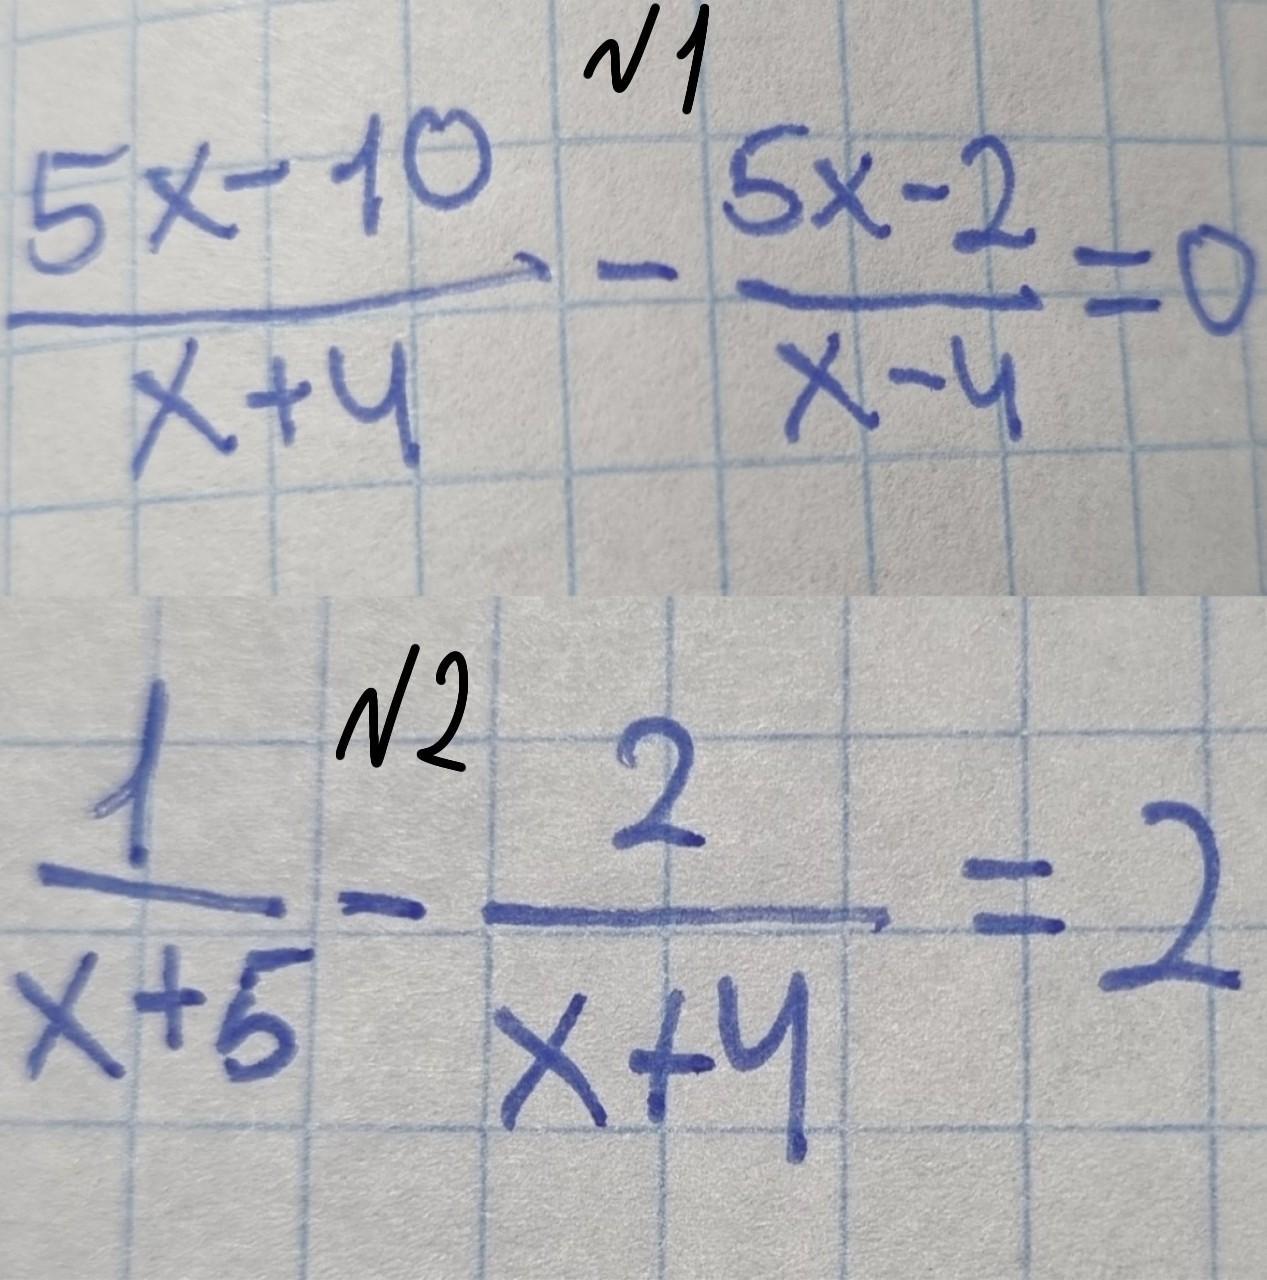 №1
5x-10/x+4 - 5x-2/x-4 = 0
№2
1/x+5 - 2/x+4 = 2